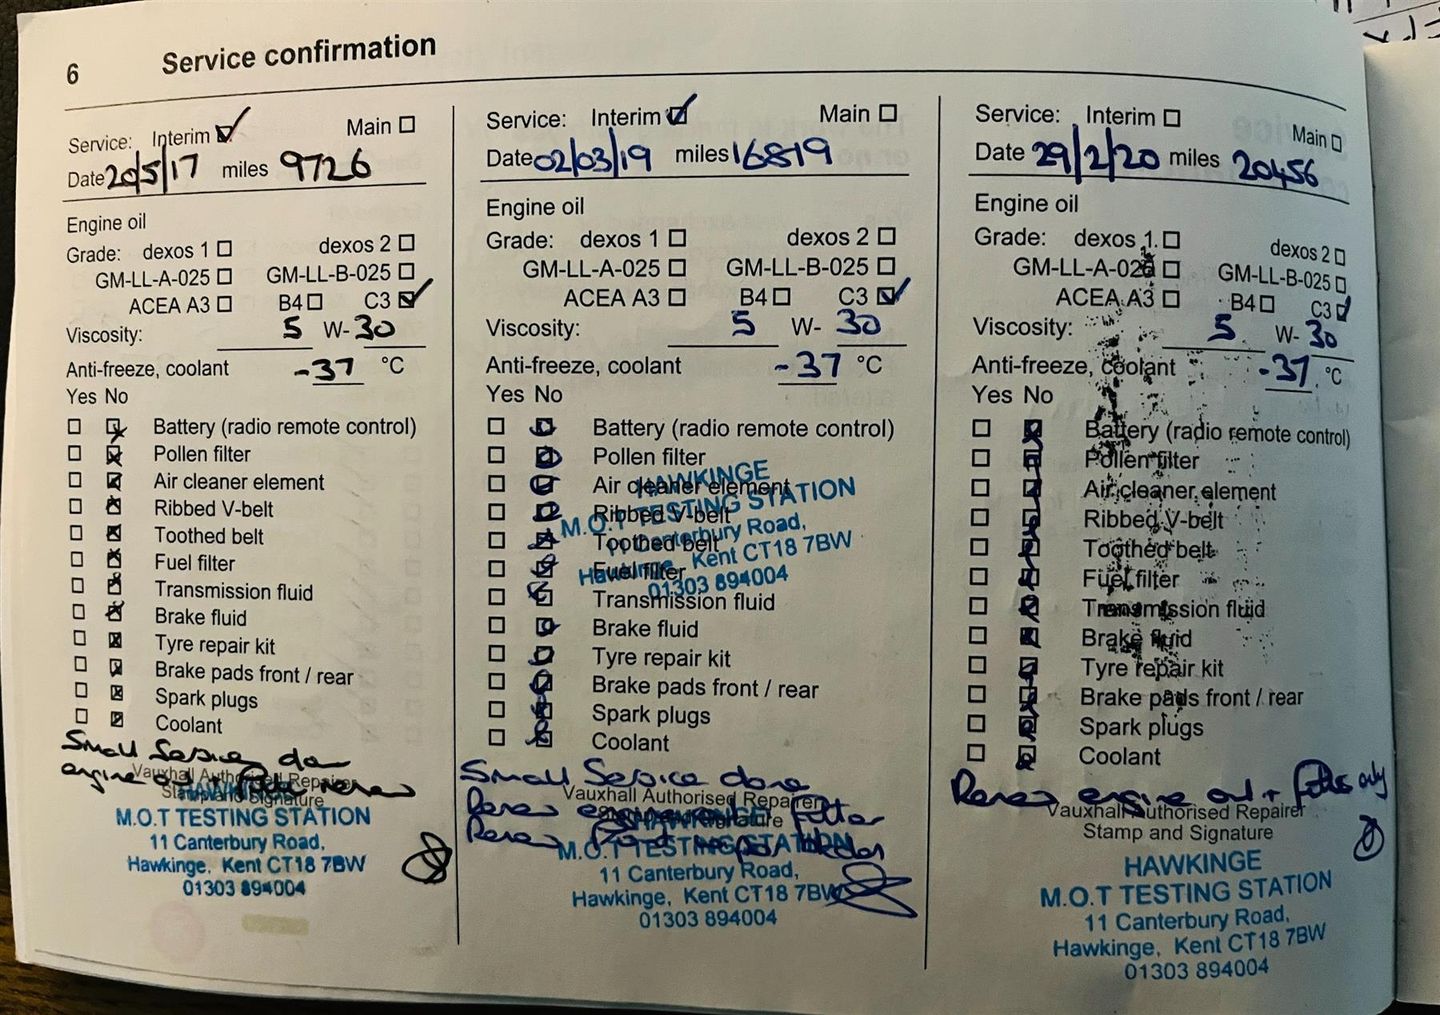 6 Service confirmation
Service: Interim Main
Date 20/5/17 miles 9726
Engine oil
Grade: dexos 1 dexos 2
GM-LL-A-025 GM-LL-B-025
ACEA A3 B4 C3
Viscosity: 5 W- 30
Anti-freeze, coolant -37 °C
Yes No
Battery (radio remote control)
Pollen filter
Air cleaner element
Ribbed V-belt
Toothed belt
Fuel filter
Transmission fluid
Brake fluid
Tyre repair kit
Brake pads front / rear
Spark plugs
Coolant
Small Service
engine oil +
Vauxhall Authorised Repairer
Stamp and Signature
HAWKINGE
M.O.T TESTING STATION
11 Canterbury Road,
Hawkinge, Kent CT18 7BW
01303 894004
Service: Interim Main
Date 02/03/19 miles 16819
Engine oil
Grade: dexos 1 dexos 2
GM-LL-A-025 GM-LL-B-025
ACEA A3 B4 C3
Viscosity: 5 W- 30
Anti-freeze, coolant -37 °C
Yes No
Battery (radio remote control)
Pollen filter
Air cleaner element
Ribbed V-belt
Toothed belt
Fuel filter
Transmission fluid
Brake fluid
Tyre repair kit
Brake pads front / rear
Spark plugs
Coolant
HAWKINGE
M.O.T TESTING STATION
11 Canterbury Road,
Hawkinge, Kent CT18 7BW
01303 894004
Small Service done
Renew engine filter
Renew
Vauxhall Authorised Repairer
Stamp and Signature
HAWKINGE
M.O.T TESTING STATION
11 Canterbury Road,
Hawkinge, Kent CT18 7BW
01303 894004
Service: Interim Main
Date 29/2/20 miles 20456
Engine oil
Grade: dexos 1 dexos 2
GM-LL-A-025 GM-LL-B-025
ACEA A3 B4 C3
Viscosity: 5 W- 30
Anti-freeze, coolant -37 °C
Yes No
Battery (radio remote control)
Pollen filter
Air cleaner element
Ribbed V-belt
Toothed belt
Fuel filter
Transmission fluid
Brake fluid
Tyre repair kit
Brake pads front / rear
Spark plugs
Coolant
Renew engine oil + only
Vauxhall Authorised Repairer
Stamp and Signature
HAWKINGE
M.O.T TESTING STATION
11 Canterbury Road,
Hawkinge, Kent CT18 7BW
01303 894004